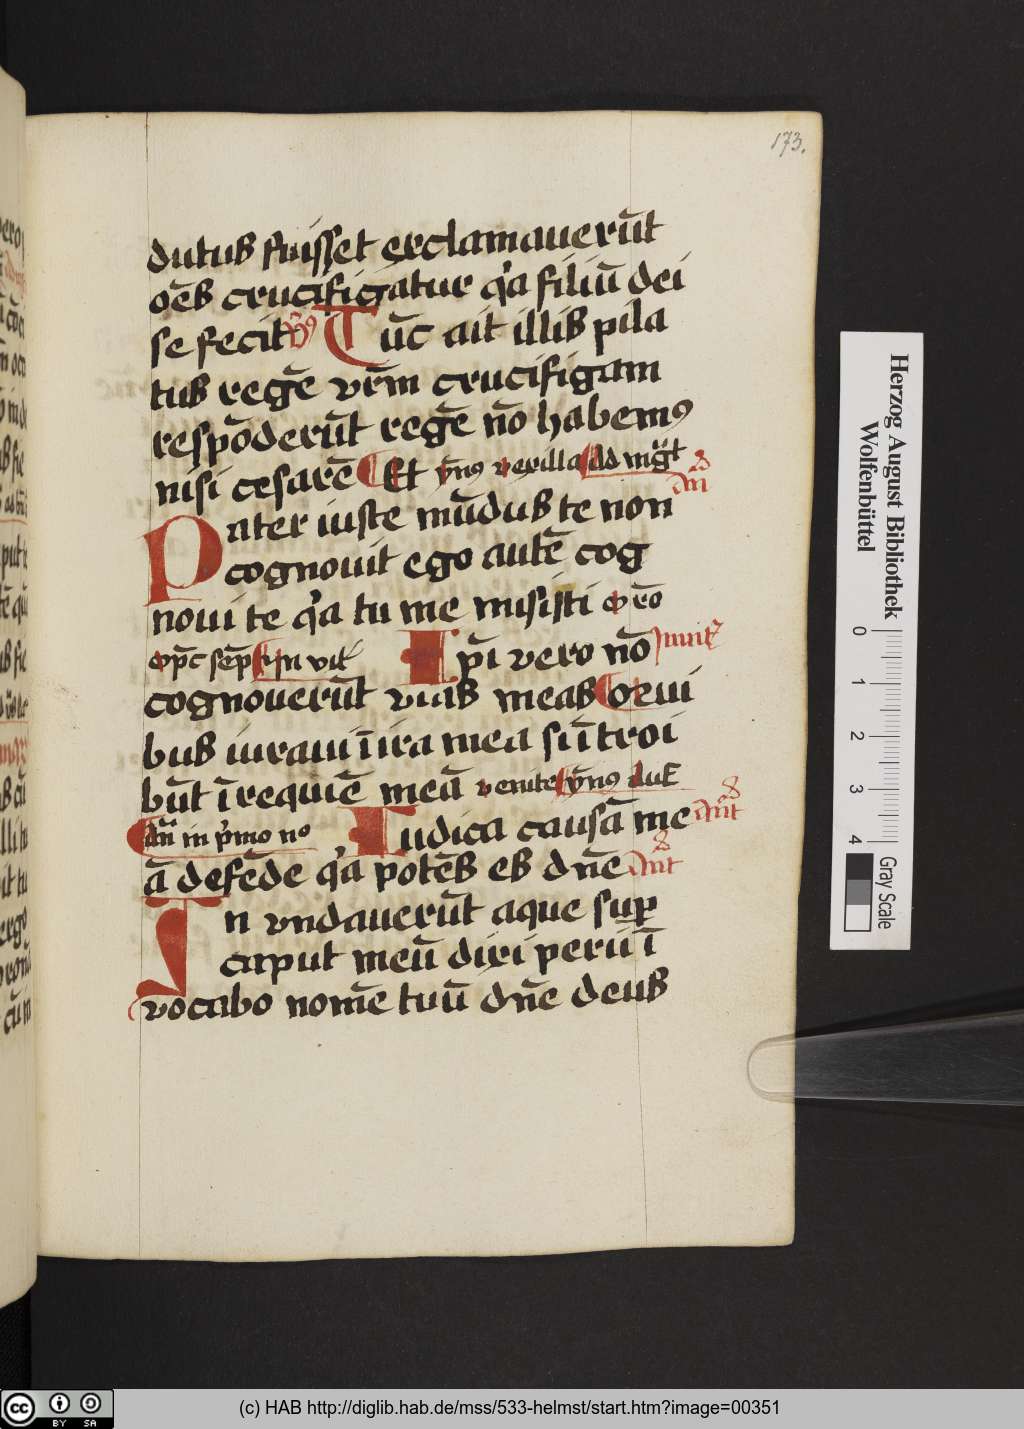 173.
dutus fuisset exclamauerūt
oēs crucifigatur q'a filiū dei
se fecit Tūc ait illis pila
tus regē vr̄m crucifigam
respōderūt regē nō habemꝰ
nisi cesarē Et ym̄nꝰ vexilla Ad mg̅t
an̄
Pater iuste mūdus te non
cognouit ego autē cog
noui te q'a tu me misisti
In vit
Ipi̅ vero nō Inuit
cognouerūt vias meas Qr̄ui
bus iuraui ī ira mea si ītroi
būt ī requiē meū venite ym̄nꝰ
in p'mo nº Iudica causā me an̄t
ā defēde q'a potēs es dn̄e an̄t
In vndauerūt aque suꝑ
caput meū dixi perii ī
vocabo nomē tuū dn̄e deus
Herzog August Bibliothek
Wolfenbüttel
0 1 2 3 4
Gray Scale
cc BY SA
(c) HAB http://diglib.hab.de/mss/533-helmst/start.htm?image=00351